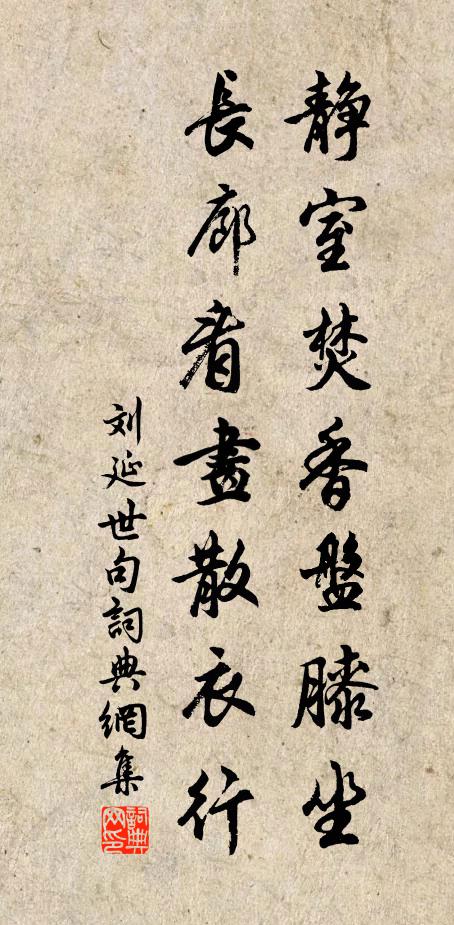 静室焚香盤膝坐
長廊看畫散衣行
刘延世句詞典網集
詞典網印